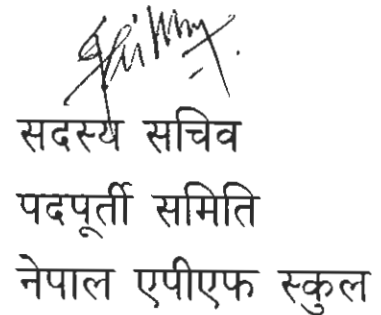 सदस्य सचिव
पदपूर्ती समिति
नेपाल एपीएफ स्कुल